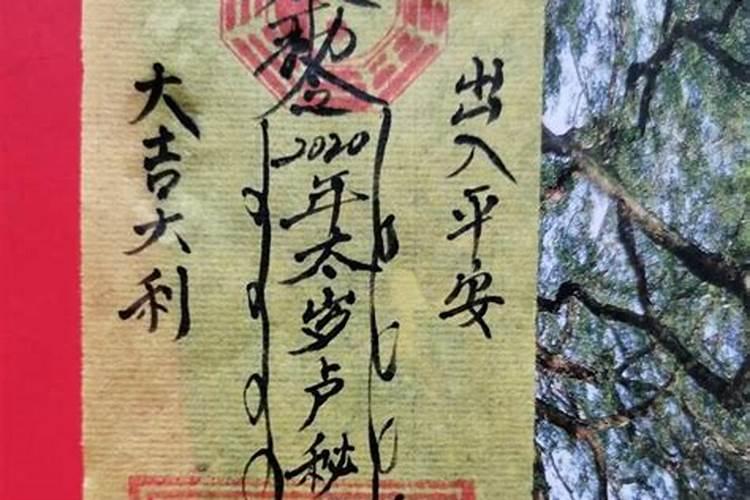 出入平安
勅令
2020年太岁卢秘
大吉大利